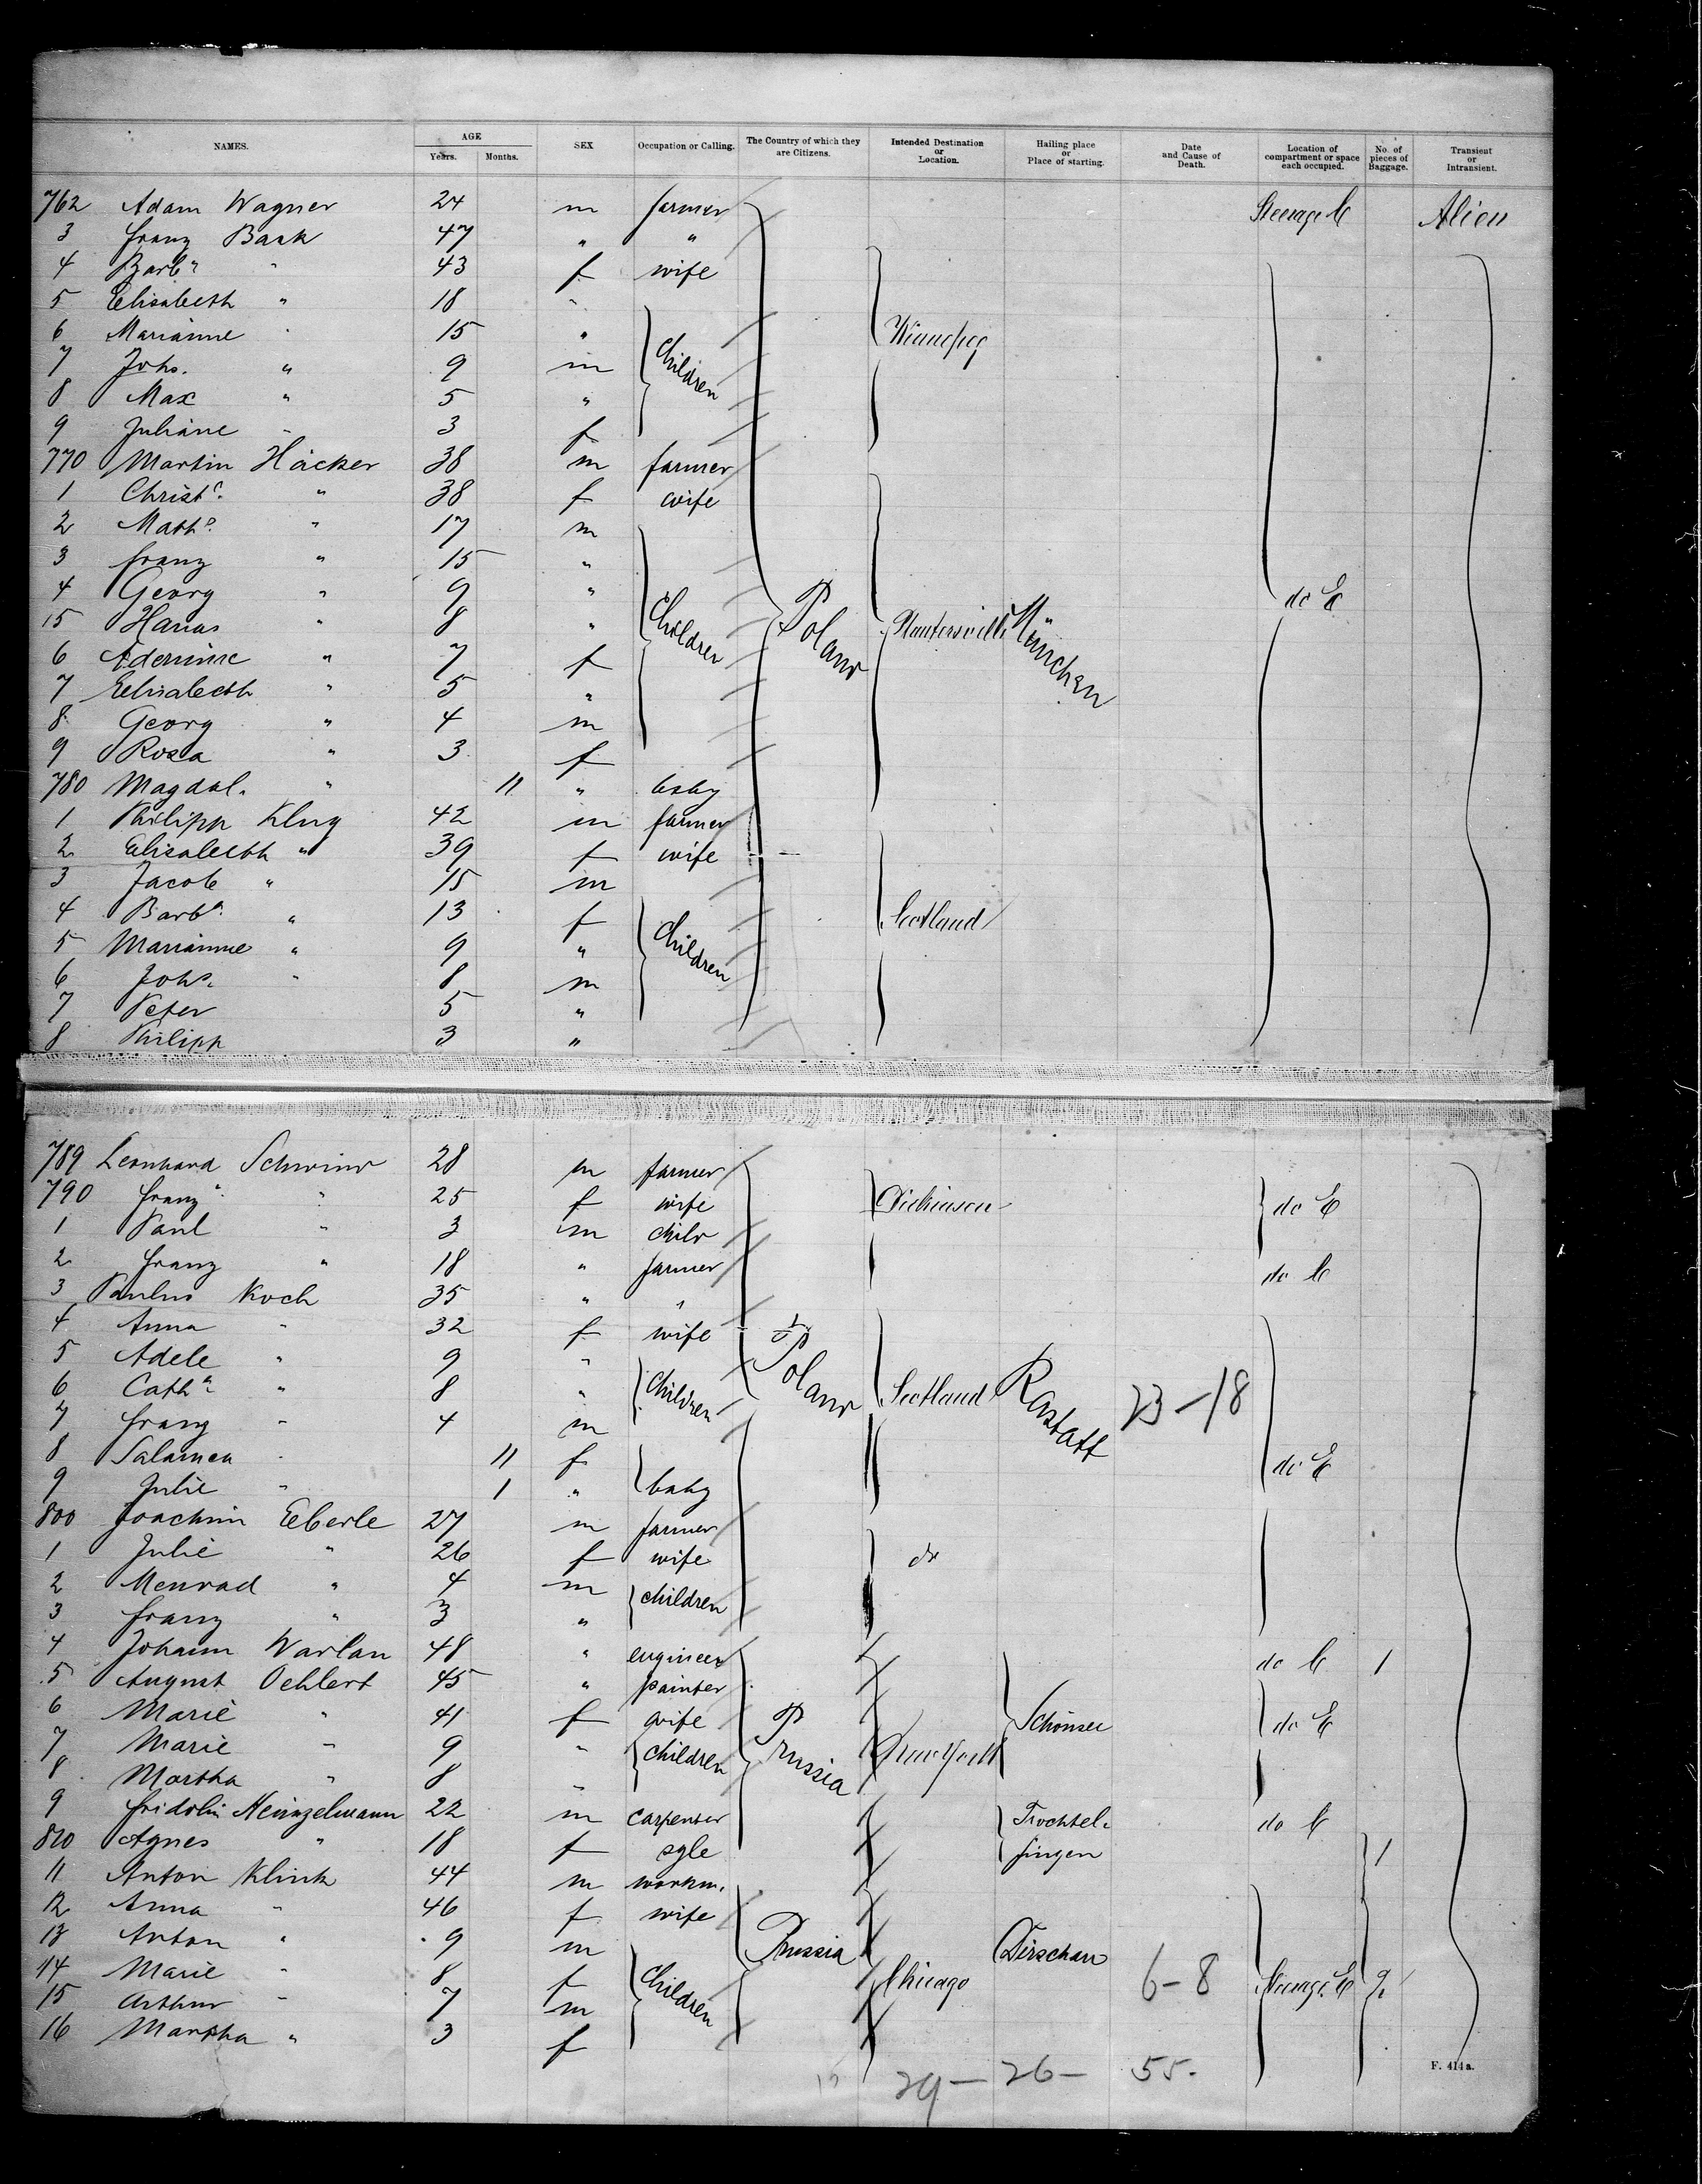 NAMES. AGE Years. Months. SEX Occupation or Calling. The Country of which they are Citizens. Intended Destination or Location. Hailing place or Place of starting. Date and Cause of Death. Location of compartment or space each occupied. No. of pieces of Baggage. Transient or Intransient.
762 Adam Wagner 24 m farmer Steerage C Alien
3 franz Bank 47 " "
4 Barba " 43 f wife
5 Elisabeth " 18 "
6 Marianne " 15 " Winnepeg
7 Johs. " 9 m Children
8 Max " 5 "
9 Juliane " 3 f
770 Martin Häcker 38 m farmer
1 Christe. " 38 f wife
2 Maths. " 17 m
3 franz " 15 "
4 Georg " 9 " do E
15 " 8 " Children Poland München
6 " 7 f
7 Elisabeth " 5 "
8 Georg " 4 m
9 Rosa " 3 f
780 Magdal. " 11 " baby
1 Philipp Klug 42 m farmer
2 Elisabeth " 39 f wife
3 Jacob " 15 m
4 Barba. " 13 f Scotland
5 Marianne " 9 " Children
6 Johs. " 8 m
7 Peter 5 "
8 Philipp 3 "
789 Leonhard Schwind 28 m farmer
790 franza. " 25 f wife Dickinson do E
1 Paul " 3 m child
2 franz " 18 " farmer do C
3 Paulus Koch 35 " "
4 Anna " 32 f wife
5 Adele " 9 "
6 Catha. " 8 " Children Poland Scotland Rastatt 23-18
7 franz " 4 m
8 Salomea " 11 f do E
9 Julie " 1 " baby
800 Joachim Eberle 27 m farmer
1 Julie " 26 f wife do
2 Menrad " 4 m children
3 franz " 3 "
4 Johann Warlan 48 " engineer do C 1
5 August Oehlert 45 " painter
6 Marie " 41 f wife Schönsee do E
7 Marie " 9 " children Prussia New York
8 Martha " 8 "
9 fridolin Heinzelmann 22 m carpenter Trochtel- do C
810 Agnes " 18 f sgle fingen 1
11 Anton Klink 44 m workm.
12 Anna " 46 f wife
13 Anton " 9 m Prussia Dirschau
14 Marie " 8 f Children Chicago 6-8 Steerage E 2
15 Arthur " 7 m
16 Martha " 3 f
29- 26- 55.
F. 414a.